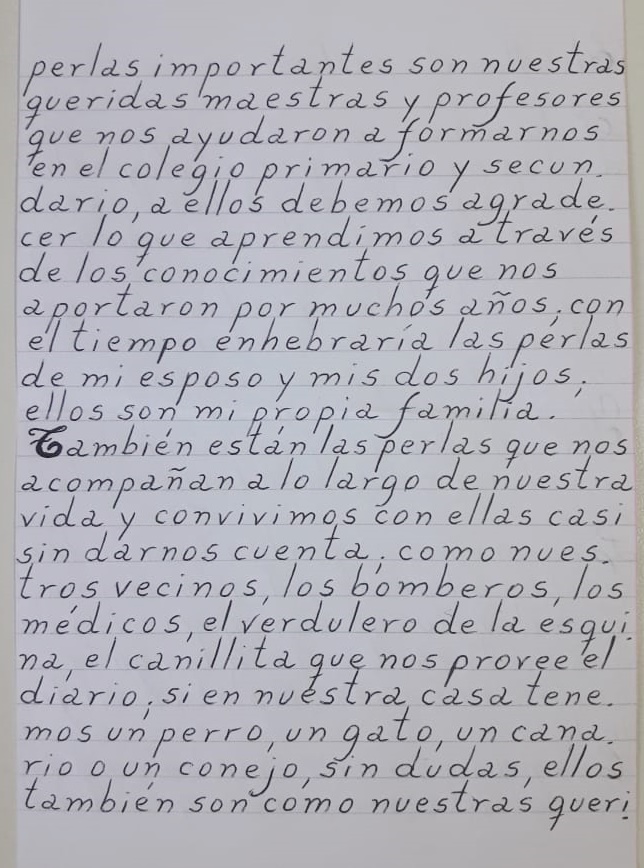 perlas importantes son nuestras
queridas maestras y profesores
que nos ayudaron a formarnos
en el colegio primario y secun.
dario, a ellos debemos agrade.
cer lo que aprendimos a través
de los conocimientos que nos
aportaron por muchos años; con
el tiempo enhebraría las perlas
de mi esposo y mis dos hijos;
ellos son mi propia familia.
También están las perlas que nos
acompañan a lo largo de nuestra
vida y convivimos con ellas casi
sin darnos cuenta; como nues.
tros vecinos, los bomberos, los
médicos, el verdulero de la esqui.
na, el canillita que nos provee el
diario; si en nuestra casa tene.
mos un perro, un gato, un cana.
rio o un conejo, sin dudas, ellos
también son como nuestras queri.